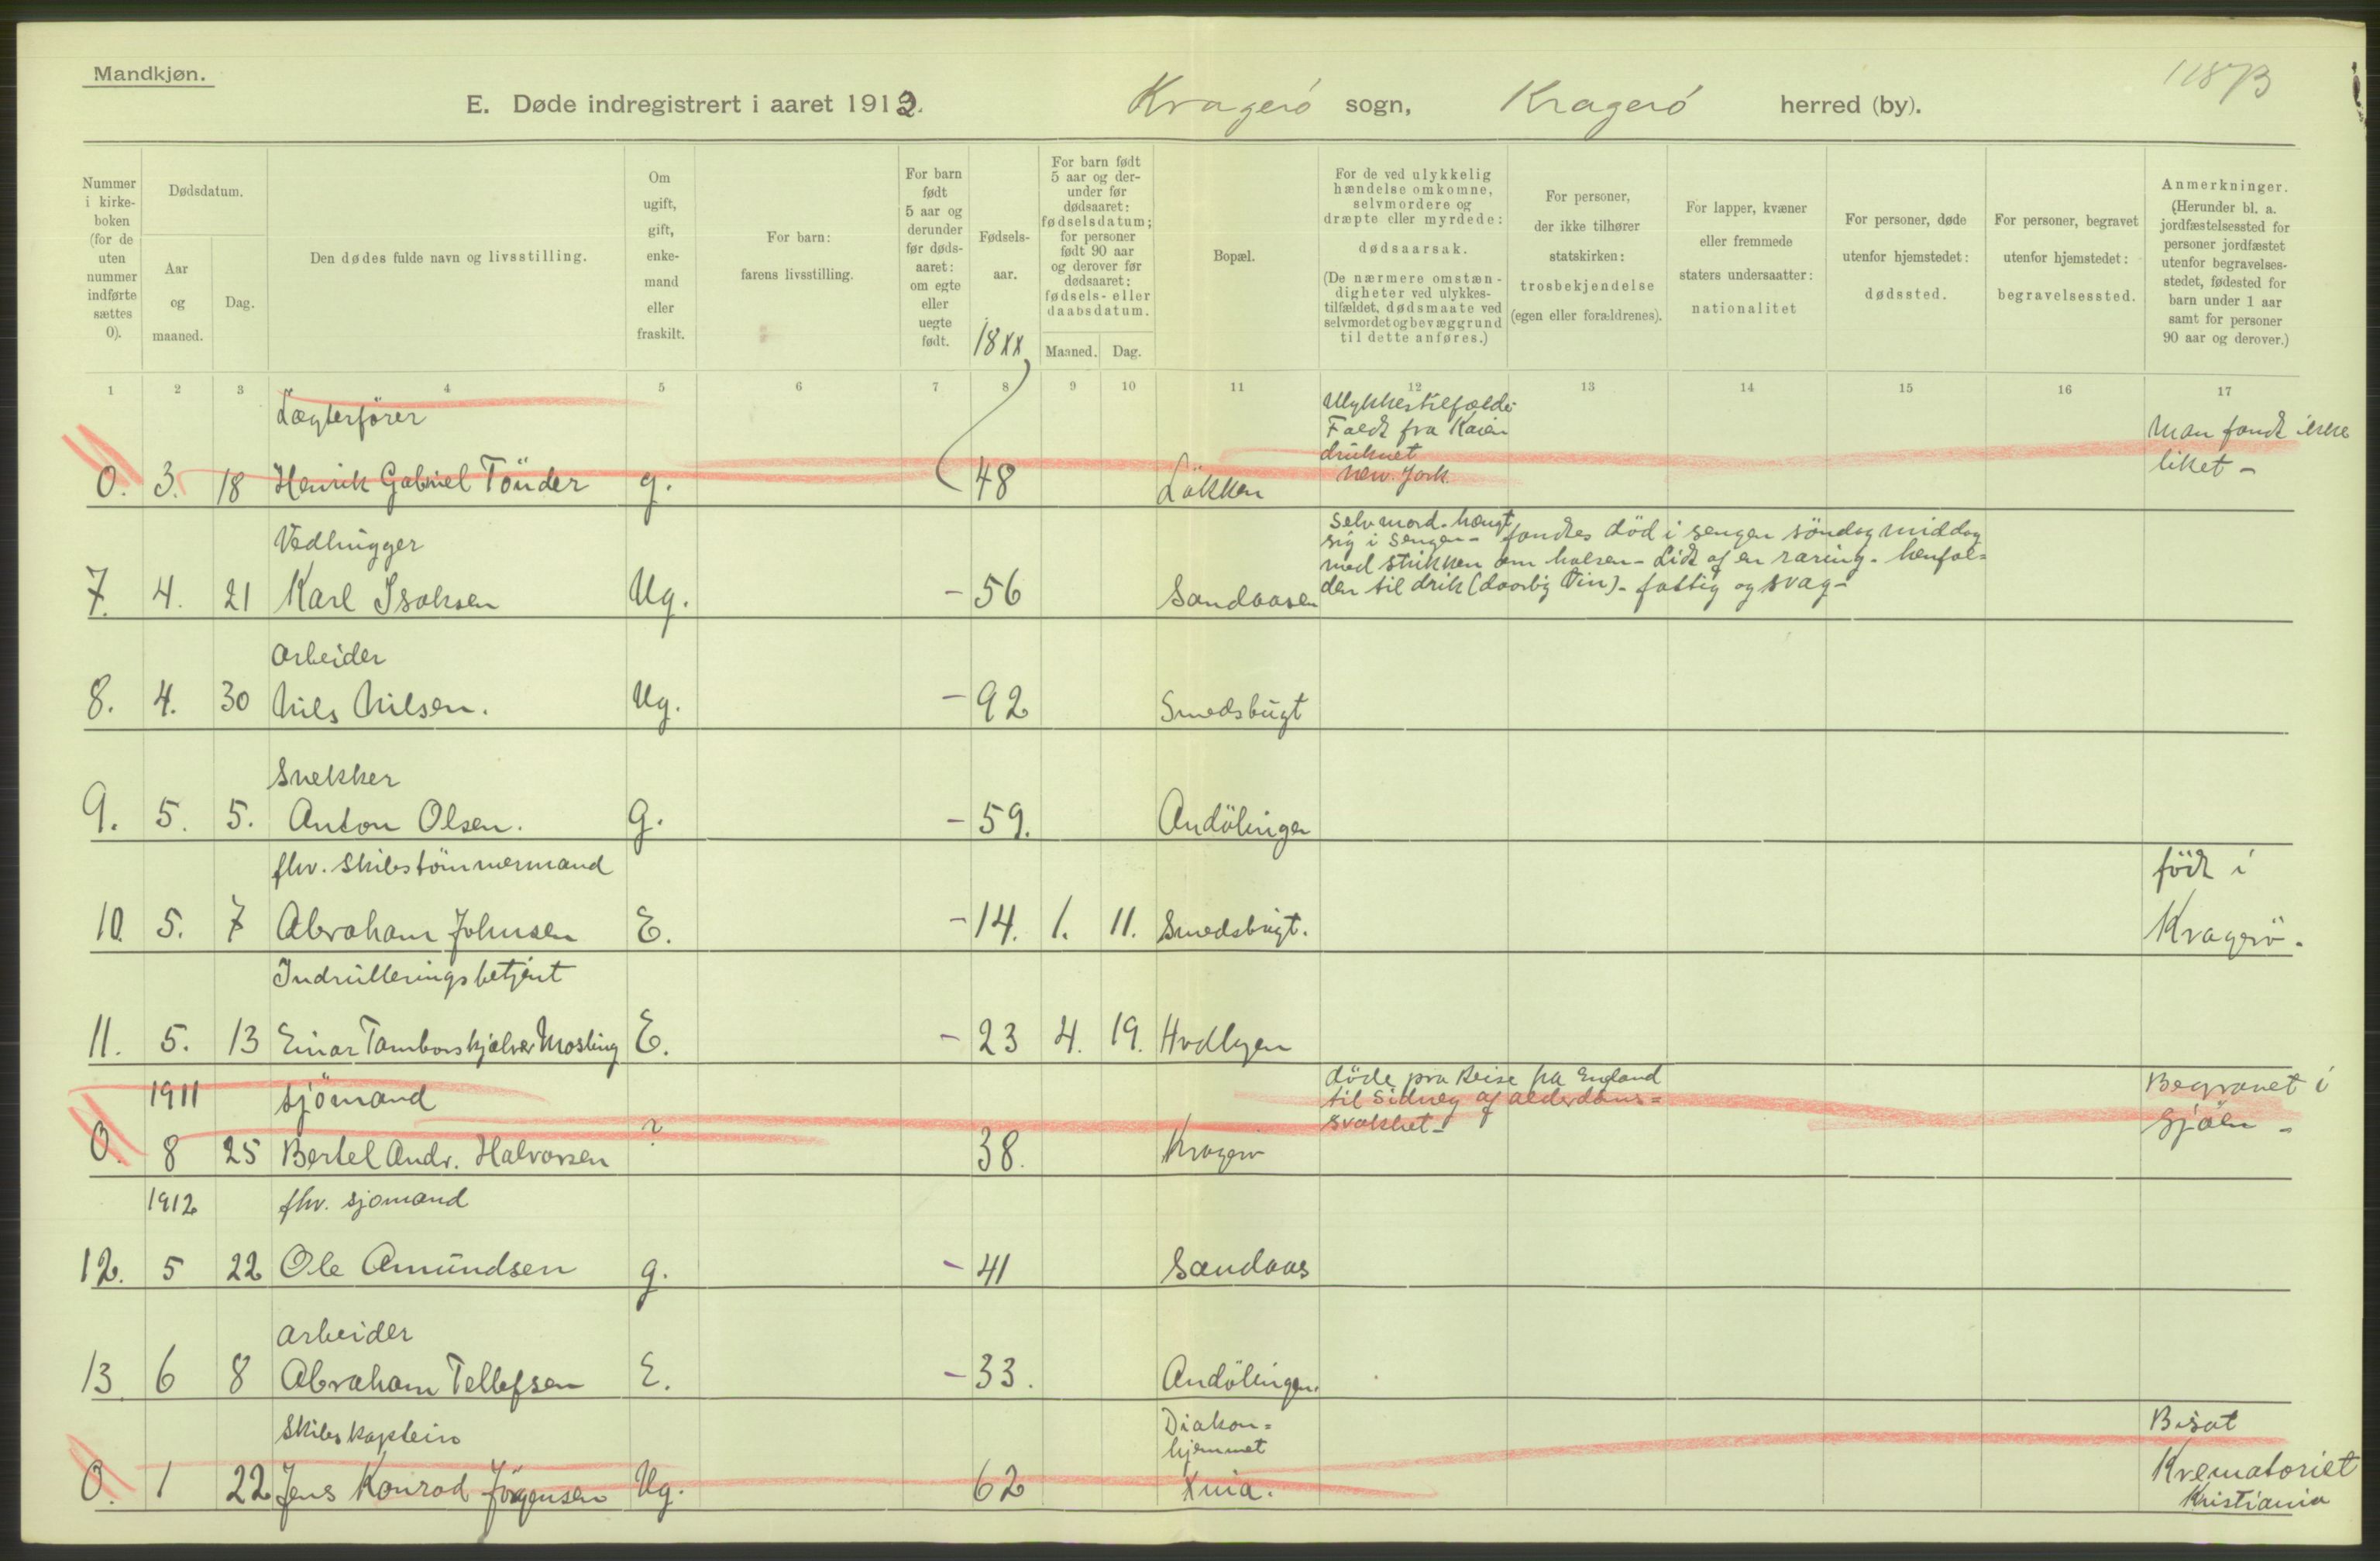 Mandkjøn.
11873
E. Døde indregistrert i aaret 1912. Kragerö sogn, Kragerö herred (by).
Nummer i kirkeboken (for de uten nummer indførte sættes 0).
Dødsdatum.
Aar og maaned.
Dag.
Den dødes fulde navn og livsstilling.
Om ugift, gift, enkemand eller fraskilt.
For barn: farens livsstilling.
For barn født 5 aar og derunder før dødsaaret: om egte eller uegte født.
Fødselsaar.
18xx
For barn født 5 aar og derunder før dødsaaret: fødselsdatum; for personer født 90 aar og derover før dødsaaret: fødsels- eller daabsdatum.
Maaned. Dag.
Bopæl.
For de ved ulykkelig hændelse omkomne, selvmordere og dræpte eller myrdede: dødsaarsak. (De nærmere omstændigheter ved ulykkestilfældet, dødsmaate ved selvmordet og bevæggrund til dette anføres.)
For personer, der ikke tilhører statskirken: trosbekjendelse (egen eller forældrenes).
For lapper, kvæner eller fremmede staters undersaatter: nationalitet
For personer, døde utenfor hjemstedet: dødssted.
For personer, begravet utenfor hjemstedet: begravelsessted.
Anmerkninger. (Herunder bl. a. jordfæstelsessted for personer jordfæstet utenfor begravelsesstedet, fødested for barn under 1 aar samt for personer 90 aar og derover.)
1 2 3 4 5 6 7 8 9 10 11 12 13 14 15 16 17
Lægterfører
Ulykkestilfælde
Faldt fra Kaien
druknet
New. York.
Man fandt ikke
liket -
0. 3. 18 Henrik Gabriel Tönder g. 48 Lökken
Vedhugger
Selvmord. hængt
sig i Sengen - fandtes död i sengen söndag middag
med strikken om halsen - Lidt af en raring - henfal=
den til drik (daarlig Vin) - fattig og svag -
7. 4. 21 Karl Isaksen Ug. - 56 Sandaasen
Arbeider
8. 4. 30 Nils Nilsen. Ug. - 92 Smedsbugt
Snekker
9. 5. 5. Anton Olsen. g. - 59. Andölingen
fhv. Skibstömmermand
födt i
10. 5. 7 Abraham Johnsen E. - 14. 1. 11. Smedsbugt. Kragerö.
Indrulleringsbetjent
11. 5. 13 Einar Tambarskjelver Mosling E. - 23 4. 19. Hvdbyen
1911 sjömand
döde paa Reise fra England
til Sidney af alderdoms=
svakhet -
Begravet i
Sjöen -
0. 8 25 Bertel Andr. Halvorsen ? 38. Kragerö
1912 fhv. sjomand
12. 5 22 Ole Amundsen g. - 41 Sandaas
Arbeider
13. 6 8 Abraham Tellefsen E. - 33. Andölingen.
Skibskaptein
Diakon=
hjemmet
Bisat
Krematoriet
Kristiania
0. 1 22 Jens Konrad Jörgensen Ug. 62 Xnia.